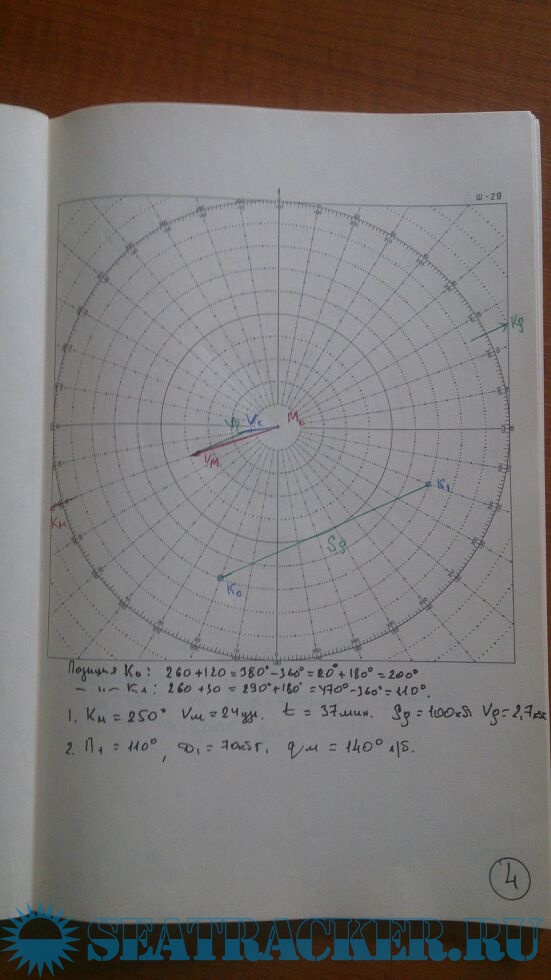 Ш-29
Kд
Vд Vк Mо
Vм
K₁
Kм
Sд
K₀
Позиция K₀: 260+120=380°-360°=20°+180°=200°
— " — K₁: 260+30=290°+180°=470°-360°=110°.
1. Kм=250° Vм=24уз. t=37мин. Sд=100кб Vд=2,7кб
2. П₁=110°, D₁=70кбт, qм=140° л/б.
4
SEATRACKER.RU